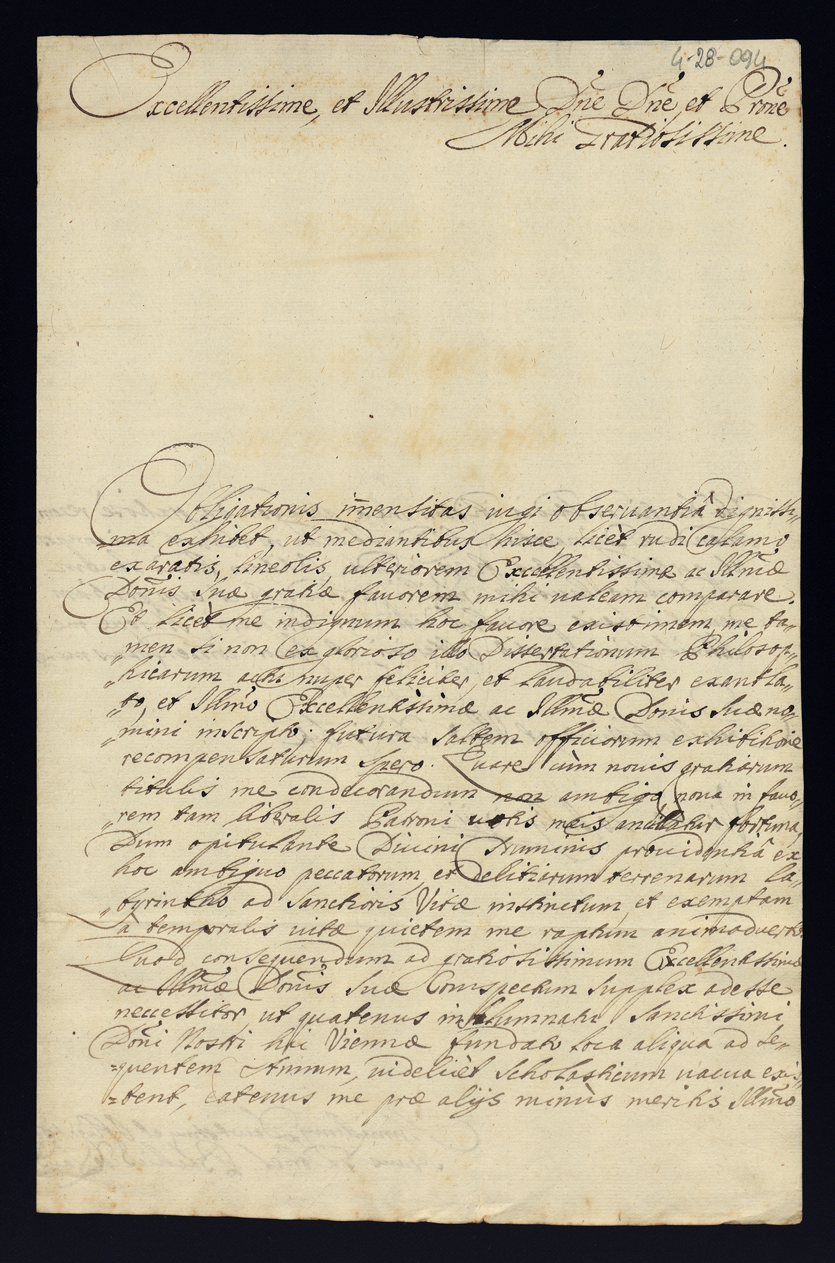 4-28-094
Excellentissime, et Illustrissime Dne Dne, et Prone
Mihi Gratiosissime.
Obligationis imensitas iugi obseruantiâ dignissi-
ma exhibet, ut mediantibus hisce, licèt rudi calamo
exaratis, lineolis, ulteriorem Excellentissimæ ac Illmæ
Donis Suæ gratiæ fauorem mihi ualeam comparare.
Et licèt me indignum hoc fauore existimem, me ta-
men si non ex glorioso illo Dissertationum Philosop-
hicarum actu nuper feliciter, et laudabiliter exantla-
to, et Illmo Excellentissimæ ac Illmæ Donis Suæ no-
mini inscripto: futura saltem officiorum exhibitione
recompensaturum spero. Quare cùm nouis gratiarum
titulis me condecorandum non ambigo, noua in fauo-
rem tam liberalis Patroni uotis meis fortuna,
Dum opitulante Diuini Numinis prouidentiâ ex
hoc ambiguo peccatorum, et delitiarum terrenarum la-
byrintho ad Sanctioris Vitæ instinctum, et exemptam
à temporalis uitæ quietem me raptum animaduerto.
Quod consequendum ad gratiosissimum Excellentissimæ
ac Illmæ Donis Suæ Conspectum supplex adesse
neccessitor, ut quatenus in Alumnatu Sanctissimi
Doni Nostri hic Viennæ fundato loca aliqua ad se-
quentem Annum, uidelicèt Scholasticum uacua exis-
tent, eatenus me præ alijs minùs meritis Illmo